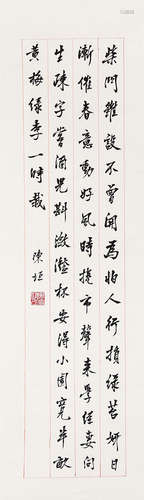 柴門雖設不曾開為怕人行損綠苔妍日
漸催春意動好風時捲市聲來學經妻問
生疎字嘗酒兒斟瀲灩杯安得小園寬半畝
黃梅綠李一時栽
陳垣